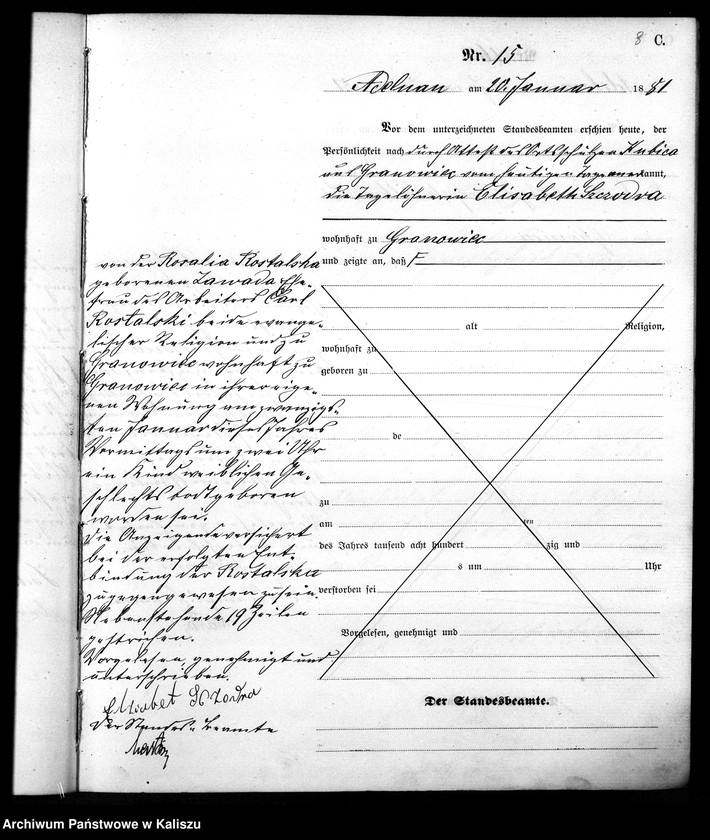 8 C.
Nr. 15
Adelnau am 20. Januar 1881
Vor dem unterzeichneten Standesbeamten erschien heute, der
Persönlichkeit nach durch Attest des Ortsschulzen Kubica
aus Granowiec vom heutigen Tage anerkannt,
die Tagelöhnerin Elisabeth Szczodra
wohnhaft zu Granowiec
und zeigte an, daß
von der Rosalia Rostalska
geborenen Zawada Ehe-
frau des Arbeiters Carl
Rostalski beide evange-
lischer Religion und zu
Granowiec wohnhaft zu
Granowiec in ihrer eige-
nen Wohnung am zwanzigs-
ten Januar dieses Jahres
Vormittags um zwei Uhr
ein Kind weiblichen Ge-
schlechts todtgeboren
worden sei.
Die Anzeigende versichert
bei der erfolgten Ent-
bindung der Rostalska
zugegen gewesen zu sein.
Nebenstehende 19 Zeilen
gestrichen.
Vorgelesen, genehmigt und
unterschrieben.
Elisabet Szczodra
Der Standesbeamte
alt Religion,
wohnhaft zu
geboren zu
de
zu
am ten
des Jahres tausend acht hundert zig und
s um Uhr
verstorben sei
Vorgelesen, genehmigt und
Der Standesbeamte.
Archiwum Państwowe w Kaliszu